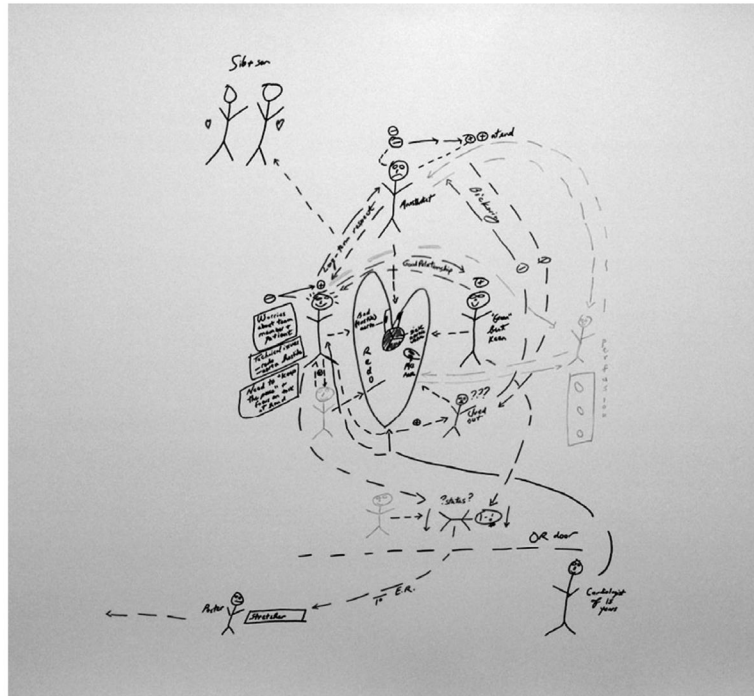 Sib + son
at end
Anesthetist
Long-term respect
Bickering
Good Relationship
Worries
about team
member +
patient
Technical issues
- redo
- aorta
Need to "keep
the peace" +
focus on
at hand
Redo
Bad
aorta
"Green"
but
Keen
Perfusion
???
Used
out
?status?
OR door
To E.R.
Porter
Stretcher
Cardiologist
of 15
years